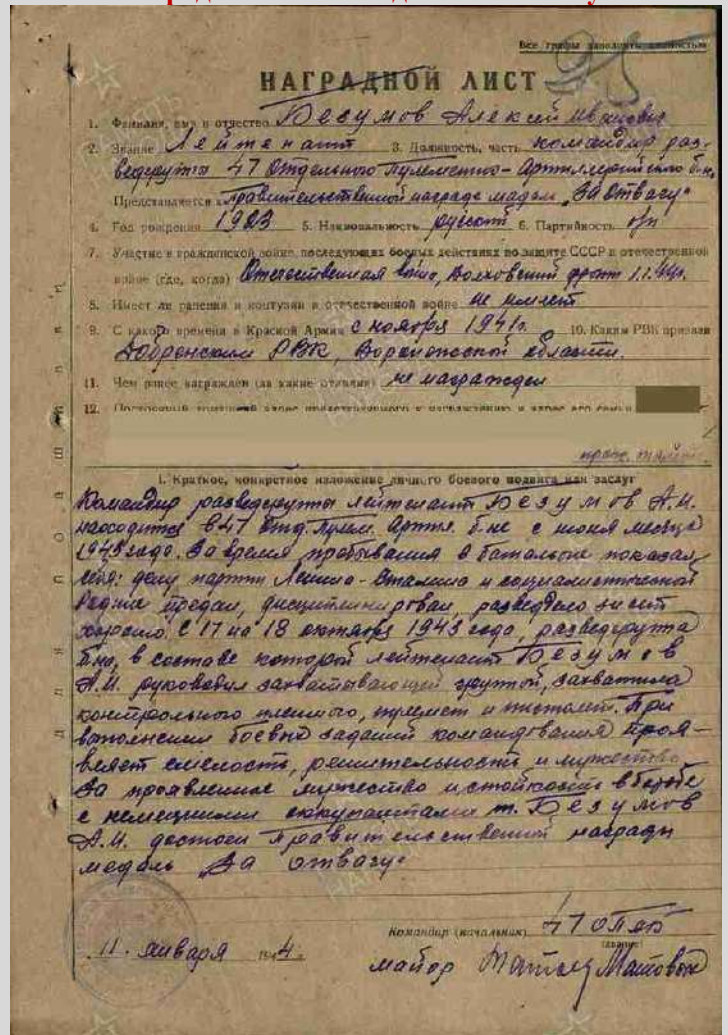 Все графы заполнять полностью
НАГРАДНОЙ ЛИСТ
1. Фамилия, имя и отчество Безумов Алексей Иванович
2. Звание Лейтенант 3. Должность, часть командир раз-
ведгруппы 47 Отдельного Пулеметно-Артиллерийского б-на
Представляется к Правительственной награде медаль "За отвагу"
4. Год рождения 1923 5. Национальность русский 6. Партийность б/п
7. Участие в гражданской войне, последующих боевых действиях по защите СССР и отечественной
войне (где, когда) Отечественная война, Волховский фронт
8. Имеет ли ранения и контузии в отечественной войне не имеет
9. С какого времени в Красной Армии с ноября 1941г. 10. Каким РВК призван
Добренским РВК, Воронежской области.
11. Чем ранее награжден (за какие отличия) не награжден
12. Постоянный домашний адрес представляемого к награждению и адрес его семьи
I. Краткое, конкретное изложение личного боевого подвига или заслуг
Командир разведгруппы лейтенант Безумов А.И.
находится в 47 Отд. Пулем. Артил. б-не с июня месяца
1943 года. За время пребывания в батальоне показал
себя: делу партии Ленина-Сталина и социалистической
Родине предан, дисциплинирован, разведдело знает
хорошо. С 17 на 18 октября 1943 года, разведгруппа
б-на, в составе которой лейтенант Безумов
А.И. руководил захватывающей группой, захватила
контрольного пленного, пулемет и пистолет. При
выполнении боевых заданий командования проя-
вляет смелость, решительность и мужество.
За проявленное мужество и стойкость в борьбе
с немецкими оккупантами т. Безумов
А.И. достоен Правительственной награды
медаль "За отвагу"
Командир (начальник) 47 ОПАБ
(звание)
11. января 1944 г.
майор